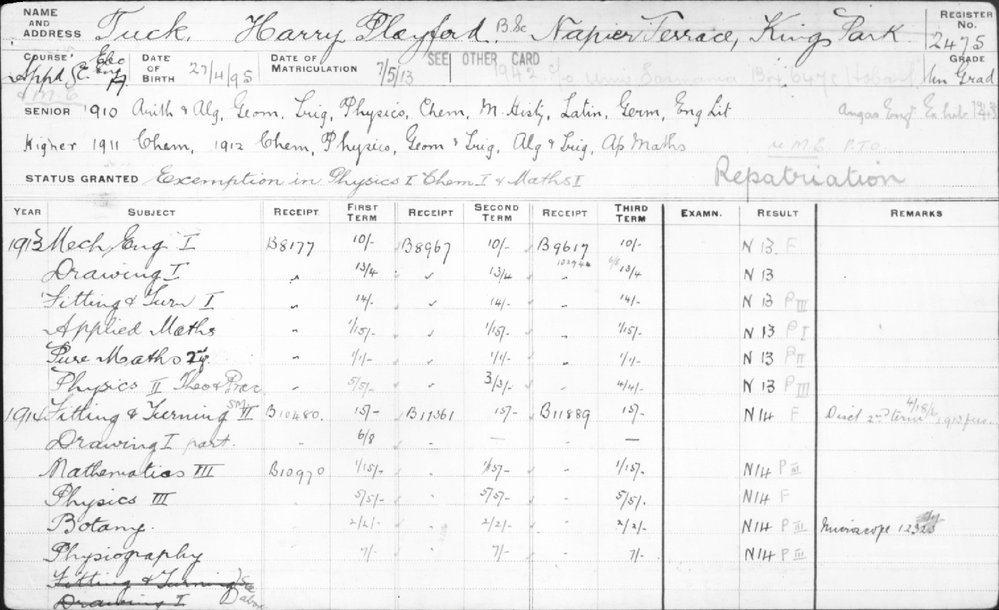 NAME AND ADDRESS Tuck, Harry Playford. B.Sc Napier Terrace, Kings Park REGISTER No. 2475
COURSE Appd Sc. Elec Eng DATE OF BIRTH 27/4/95 DATE OF MATRICULATION 7/5/13 SEE OTHER CARD GRADE Un Grad
& M.E 1942 c/o Univ Tasmania Box 647c Hobart
SENIOR 1910 Arith & Alg, Geom, Trig, Physics, Chem, M. Hist, Latin, Germ, Eng Lit Angas Eng Exhib
Higher 1911 Chem, 1912 Chem, Physics, Geom & Trig, Alg & Trig, Ap Maths M.E. P.T.O.
STATUS GRANTED Exemption in Physics I Chem I & Maths I Repatriation
YEAR SUBJECT RECEIPT FIRST TERM RECEIPT SECOND TERM RECEIPT THIRD TERM EXAMN. RESULT REMARKS
1913 Mech Eng I B8177 10/- B8967 10/- B9617 10/- N 13 F
Drawing I " 13/4 " 13/4 13/4 N 13
Fitting & Turn I " 14/- " 14/- 14/- N 13 P III
Applied Maths " 1/15/- " 1/15/- 1/15/- N 13 P I
Pure Maths " 1/1/- 1/1/- 1/1/- N 13 P II
Physics II Theo & Prac " 5/5/- 3/3/- 4/4/- N 13 P III
1914 Fitting & Turning II B10480. 15/- B11361 15/- B11889 15/- N14 F Duct 2nd term 1913 fees
Drawing I part. 6/8 — —
Mathematics III B10970 1/15/- 1/15/- 1/15/- N14 P III
Physics III 5/5/- 5/5/- 5/5/- N14 F
Botany. 2/2/- 2/2/- 2/2/- N14 P III Microscope
Physiography 7/- 7/- 7/- N14 P III
Fitting & Turning See
Drawing I above